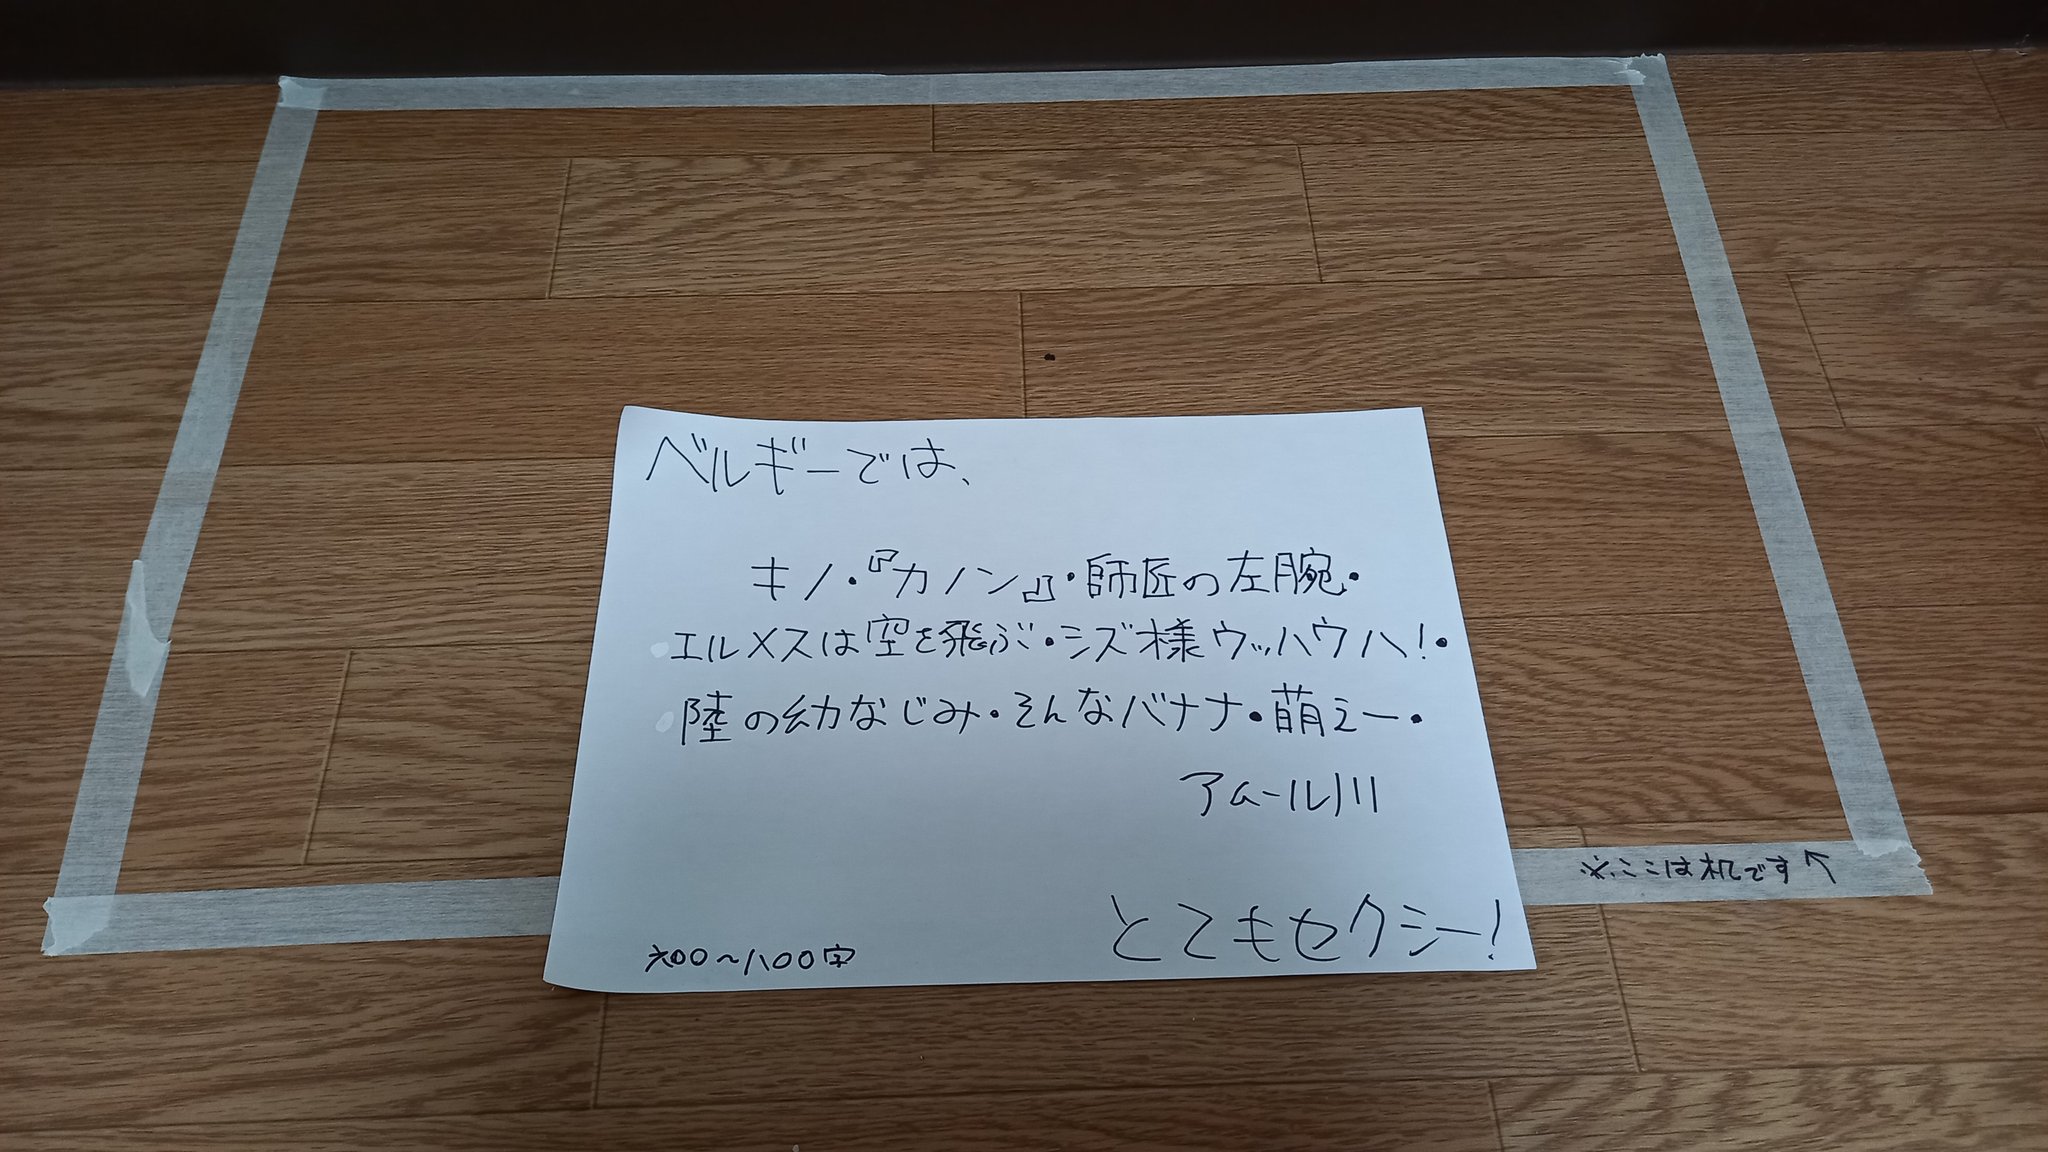 ベルギーでは、
キノ・『カノン』・師匠の左腕・
エルメスは空を飛ぶ・シズ様ウッハウハ!・
陸の幼なじみ・そんなバナナ・萌えー・
アムール川
とてもセクシー!
六〇〇～八〇〇字
※ここは机です↑